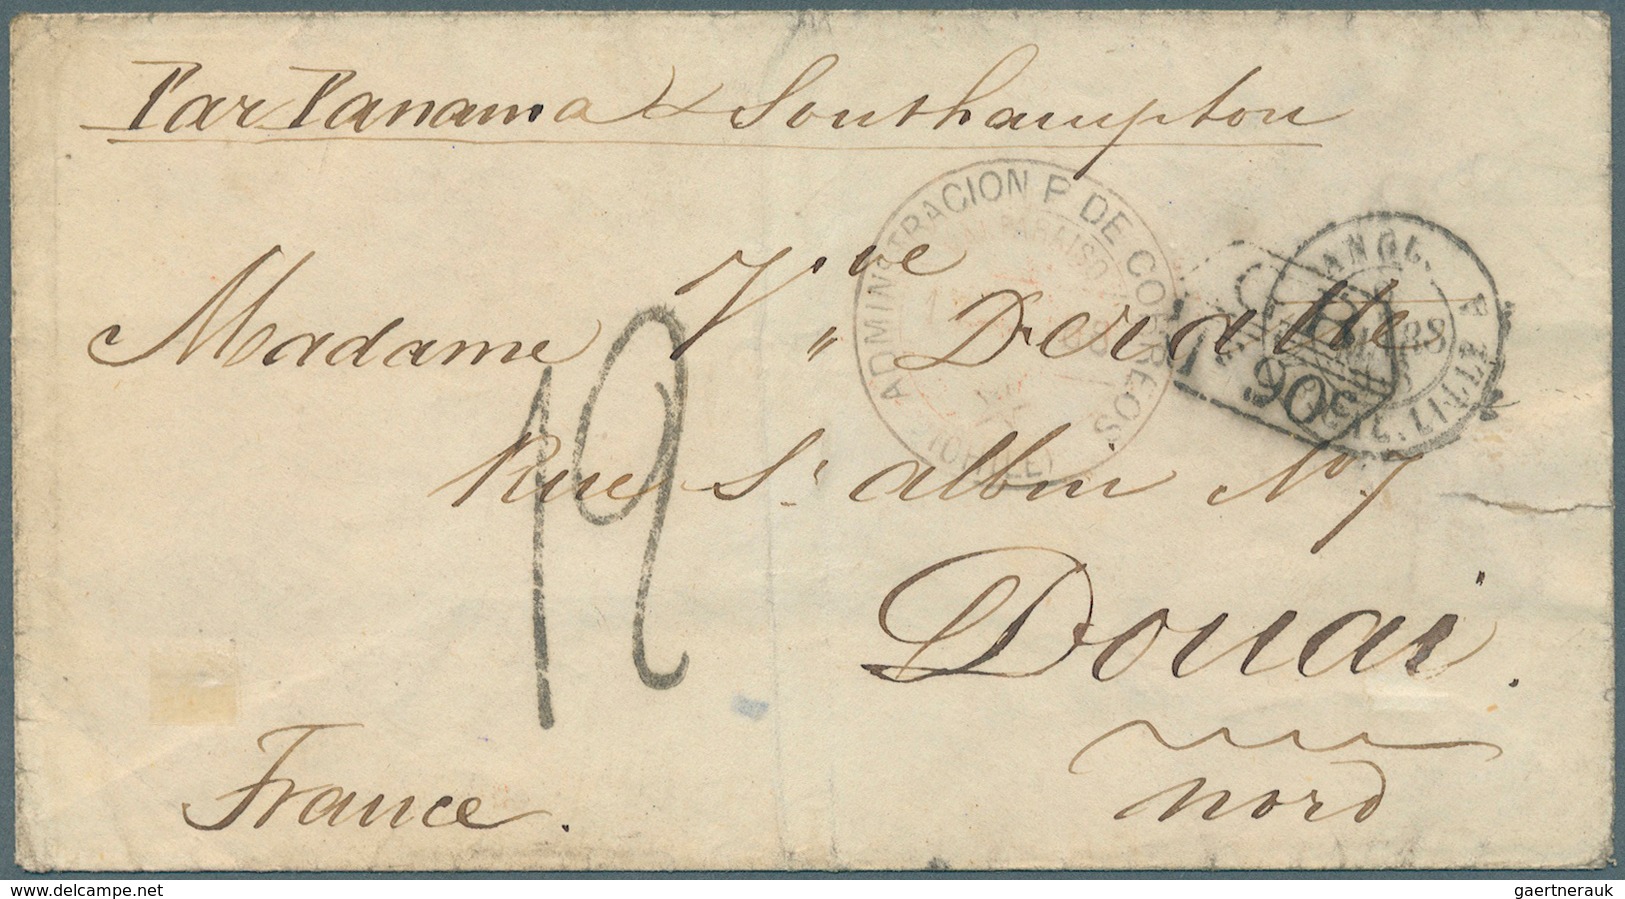 Par Panama & Southampton
ADMINISTRACION P. DE CORREOS
VALPARAISO
(CHILE)
ANGL.
Madame Vve Deratte
90c
12
Rue St albin No 7
Douai.
Nord
France.
delcampe.net
gaertnerauk